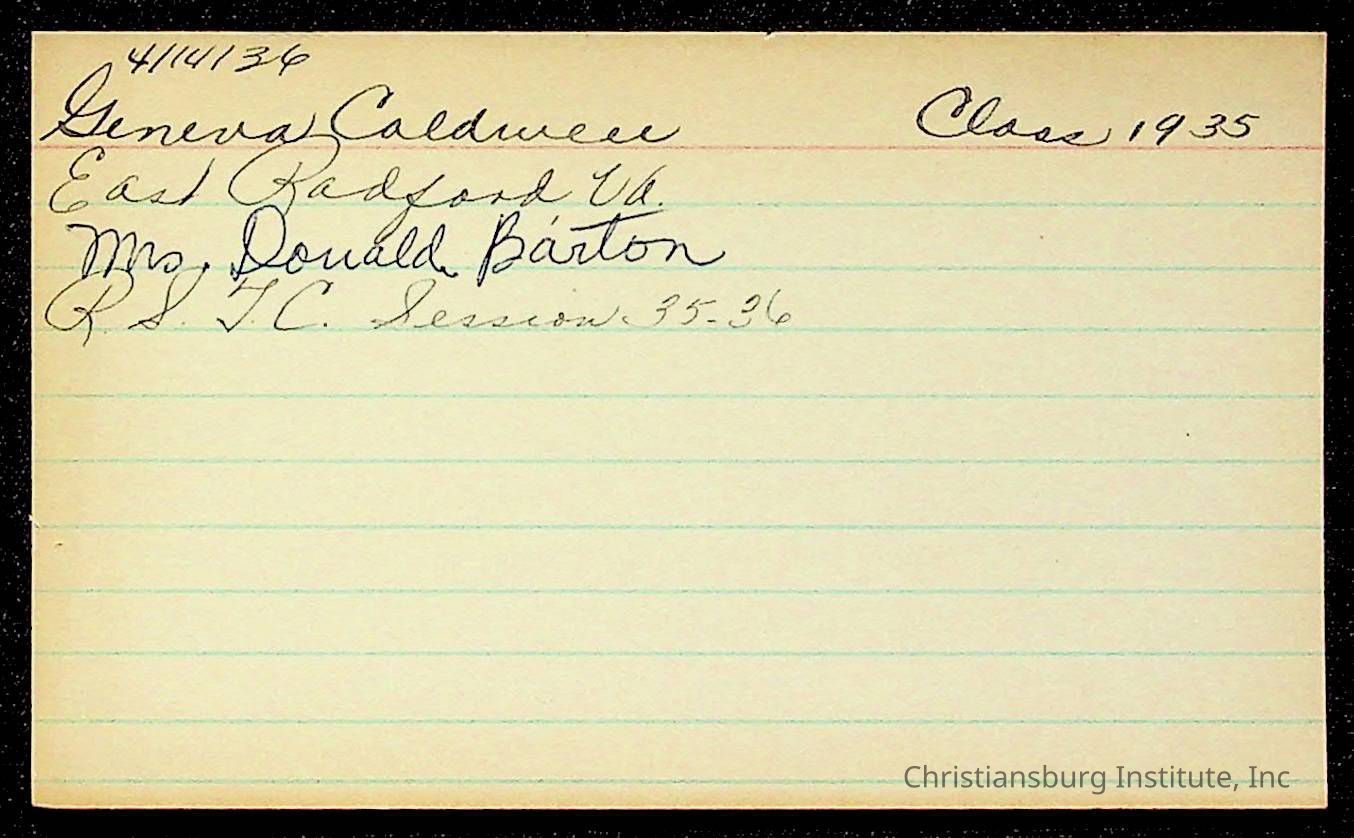 4/14/36
Geneva Caldwell Class 1935
East Radford Va.
Mrs. Donald Barton
R. S. T. C. Session 35-36
Christiansburg Institute, Inc